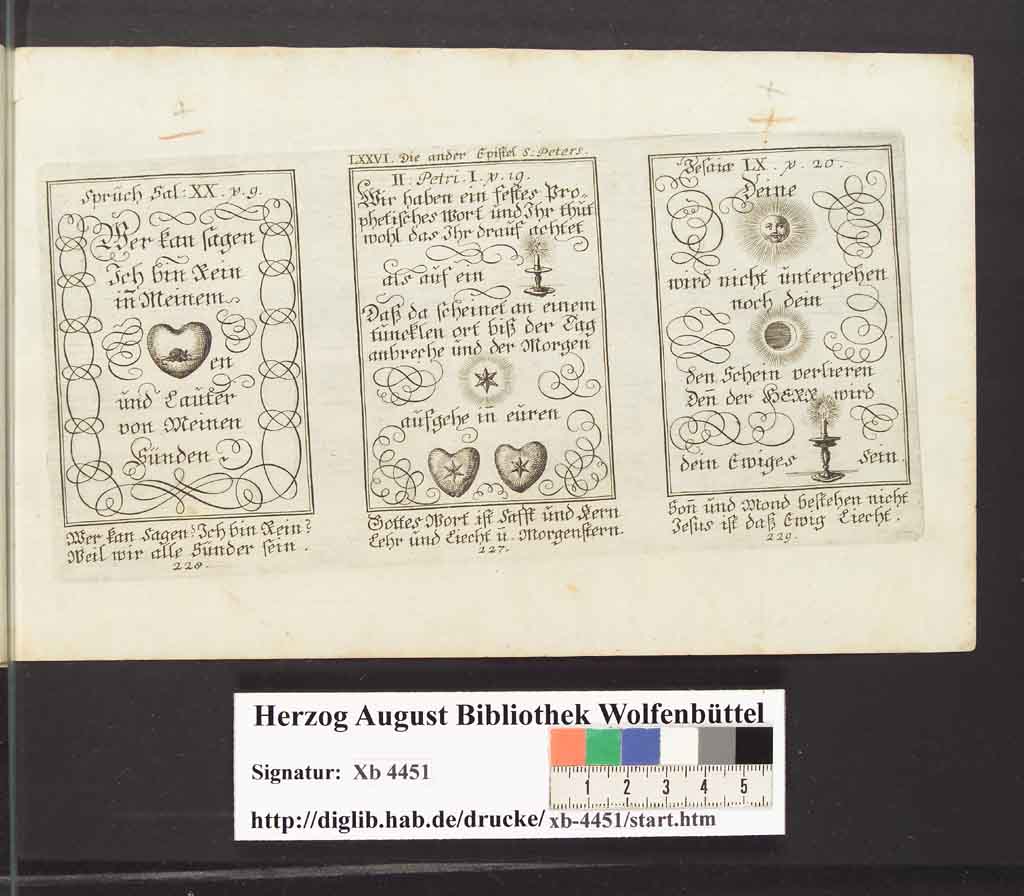 Sprüch Sal: XX. v. 9.
Wer kan sagen
Ich bin Rein
in̄ Meinem
en
und Lauter
von Meinen
Sünden.
Wer kan Sagen? Ich bin Rein?
Weil wir alle Sünder sein.
228.
LXXVI. Die ander Epistel S. Peters.
II. Petri. I. v. 19.
Wir haben ein festes Pro-
phetisches Wort und Ihr thut
wohl das Ihr drauf achtet
als auf ein
Daß da scheinet an einem
tuncklen ort biß der Tag
anbreche und der Morgen
aufgehe in̄ euren
Gottes Wort ist Safft und Kern
Lehr und Liecht u. Morgenstern.
227.
Jesaiæ LX. v. 20.
Deine
wird nicht untergehen
noch dein
den Schein verlieren
Den̄ der HERR wird
dein Ewiges sein.
Son̄ und Mond bestehen nicht
Jesus ist daß Ewig Liecht.
229.
Herzog August Bibliothek Wolfenbüttel
Signatur: Xb 4451
1 2 3 4 5
http://diglib.hab.de/drucke/xb-4451/start.htm